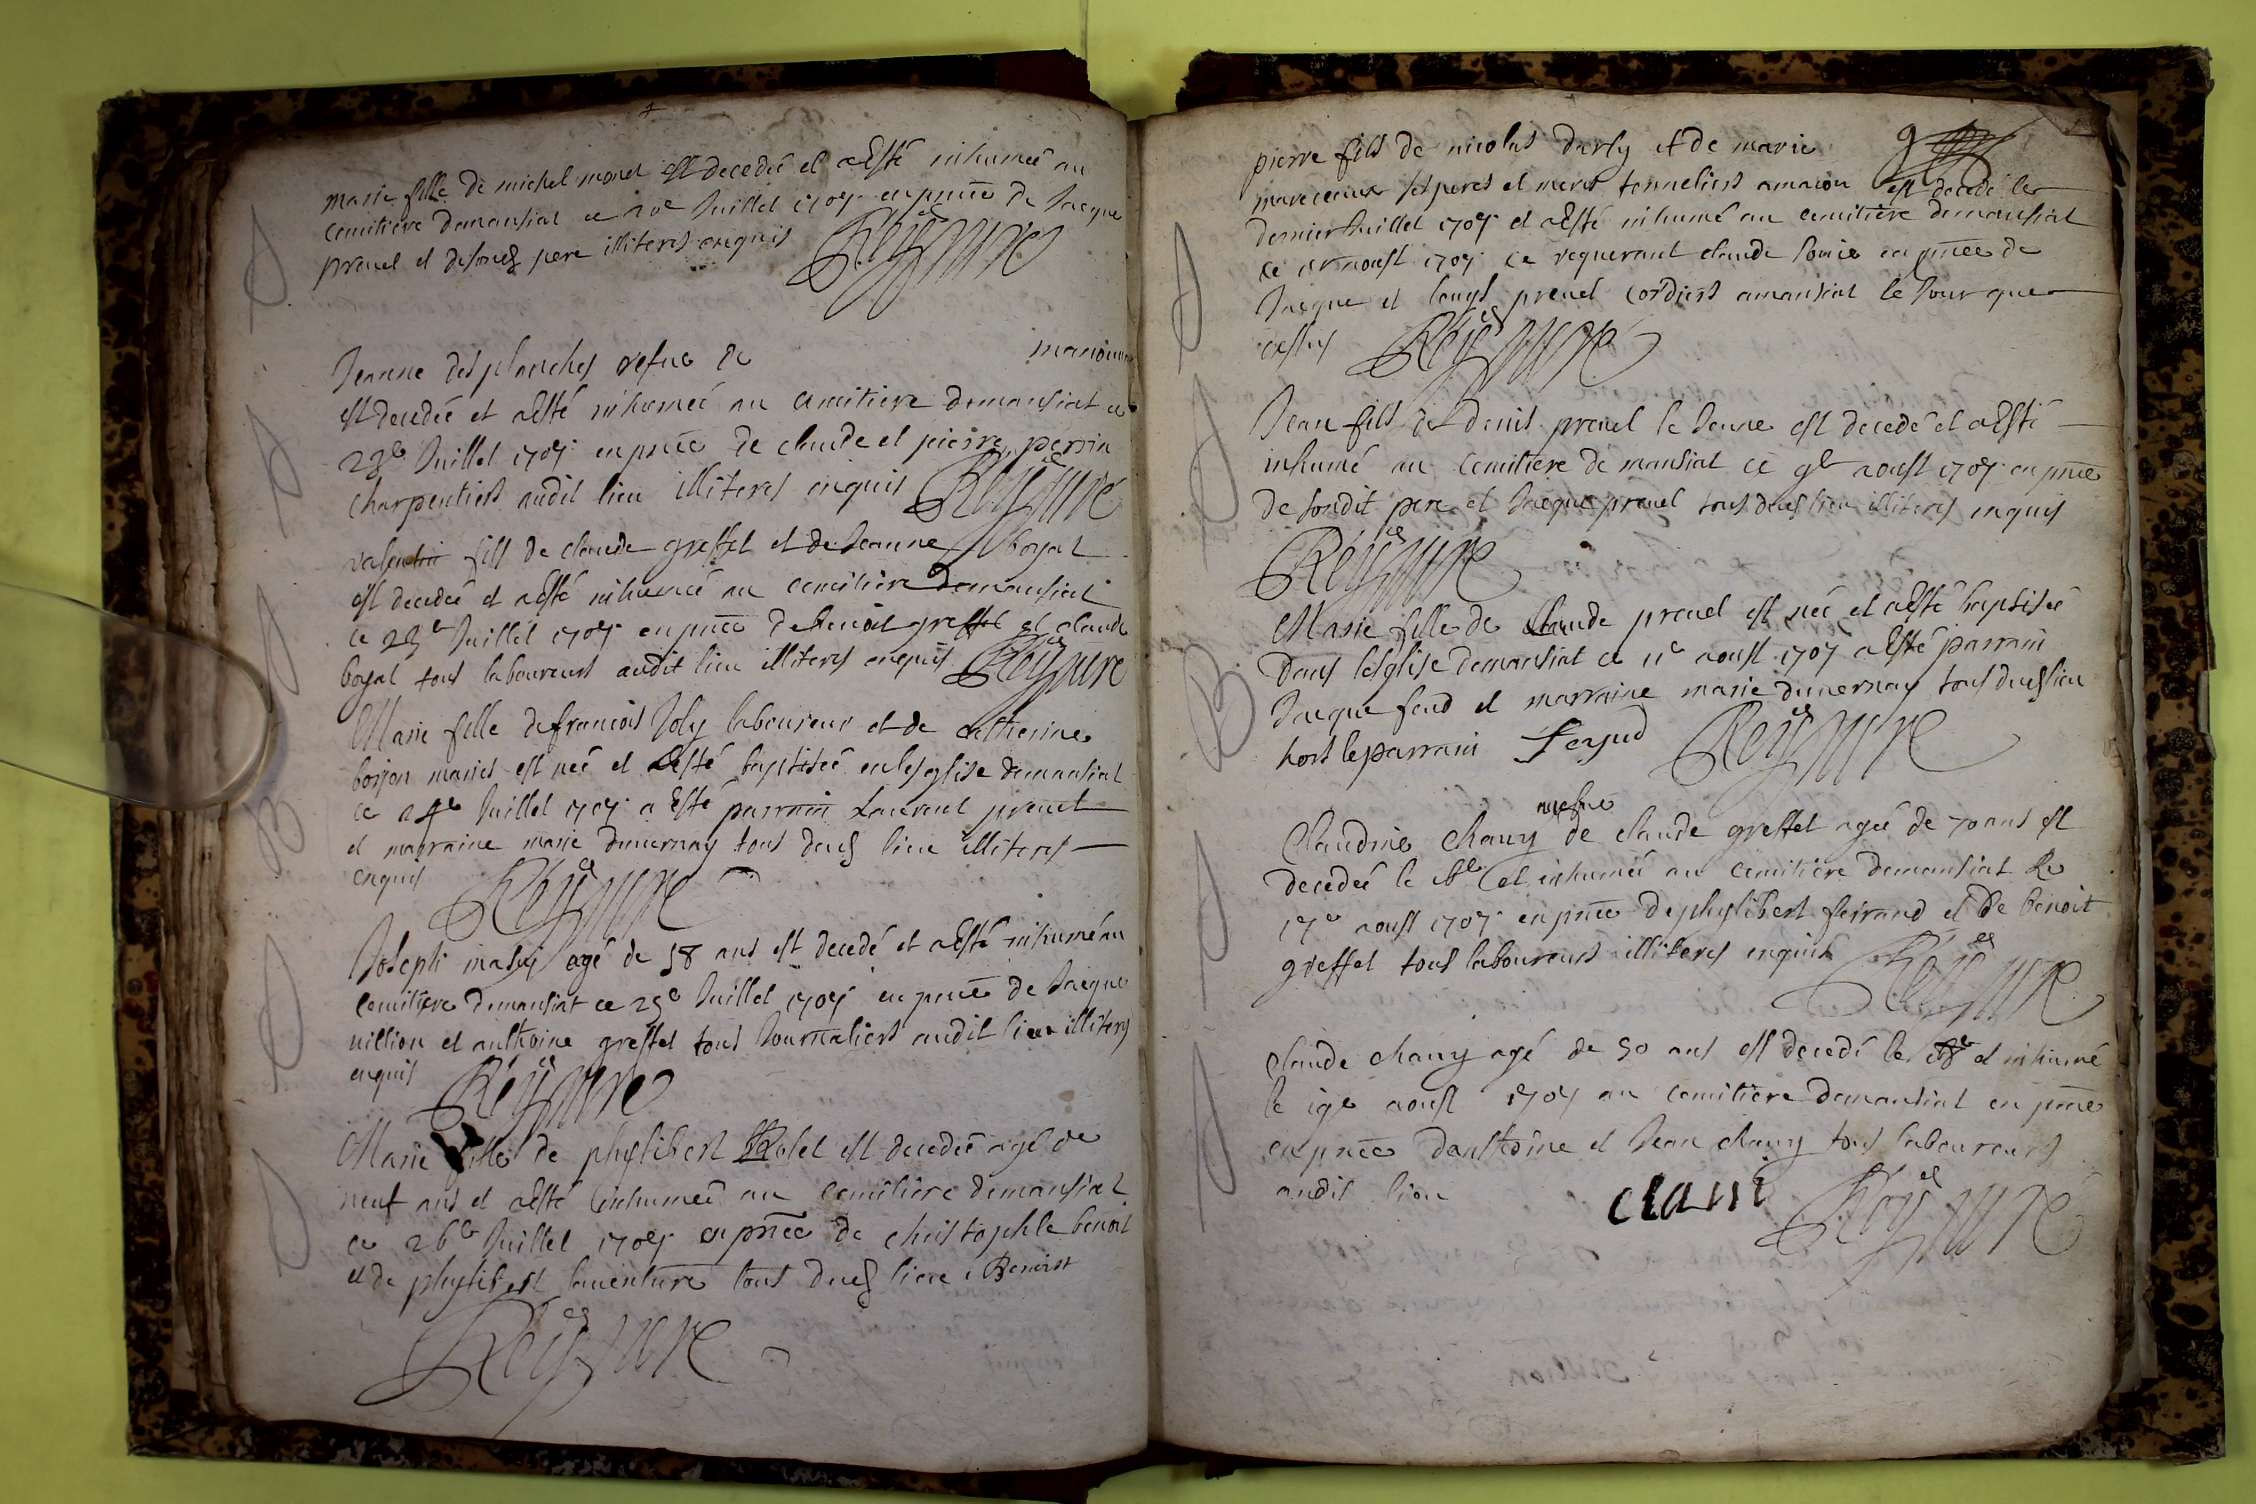 marie fille de michel morel est decedeé et a esté inhumeé au
cemitiere demansiat ce 20e Juillet 1707 en pnce de Jacque
preuel et desonds pere illiteres enquis
Reyssure
Jeanne desplanches vefue de manouur
est decedeé et a esté inhumeé au cemitiere demansiat ce
23e Juillet 1707 en pnce de claude et pierre perrin
charpentiers audit lieu illiteres enquis
valentin fils de claude greffet et de Jeanne boyat
est decedeé et a esté inhumeé au cemitiere demansiat
ce 23e Juillet 1707 en pnce de benoit greffet et claude
boyat tous laboureurs audit lieu illiteres enquis
Marie fille de francois Joly laboureur et de catherine
borjon mariés est neé et a esté baptiseé en lesglise demansiat
ce 24e Juillet 1707 a esté parrain Laurent preuel
et marraine marie duuernay tous duds lieu illiteres
enquis
Joseph agé de 58 ans est decedé et a esté inhumé au
cemitiere demansiat ce 25e Juillet 1707 en pnce de Jacque
uillion et anthoine greffet tous Journaliers audit lieu illiteres
enquis
Marie fille de phylibert Rolet est decedeé agé de
neuf ans et a esté inhumeé au cemitiere demansiat
ce 26e Juillet 1707 en pnce de christophle benoit
et de phylibert bonenture tous duds lieu Benoist
pierre fils de nicolas darly et de marie 9
marceaux ses peres et meres tonneliers amacon est decedé le
dernier Juillet 1707 et a esté inhumé au cemitiere demansiat
ce aoust 1707 ce requerant claude en pnce de
Jacque et louys preuel cordiers amansiat le Jour que
dessus
Jean fils de denis preuel le Jeune est decedé et a esté
inhumé au cemitiere de mansiat ce 9e aoust 1707 en pnce
de sondit pere et Jacque preuel tous duds lieu illiteres enquis
Marie fille de claude preuel est neé et a esté baptiseé
dans lesglise demansiat ce 11e aoust 1707 a esté parrain
Jacque feud et marraine marie duuernay tous duds lieu
hors le parrain feyud
vefue
Claudine chany de claude greffet ageé de 70 ans est
decedeé le et inhumeé au cemitiere demansiat le
17e aoust 1707 en pnce de phylibert ferrand et de benoit
greffet tous laboureurs illiteres enquis
Claude chany agé de 50 ans est decedé le et inhumé
le 19e aoust 1707 au cemitiere demansiat en pnce
en pnce danthoine et Jean chany tous laboureurs
audit lieu
clani